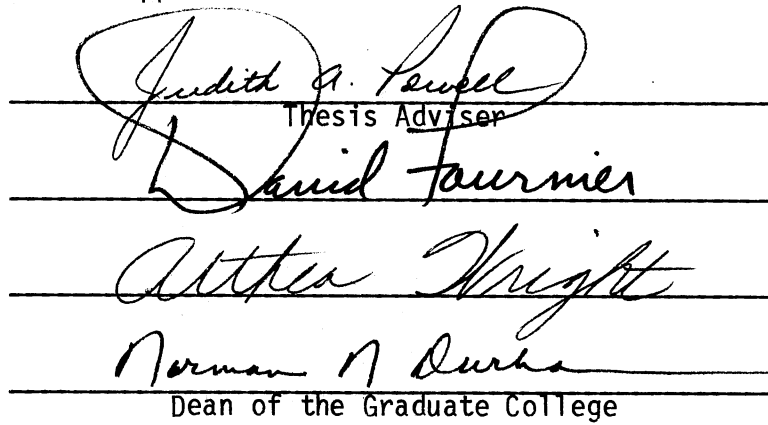 Judith A. Powell
Thesis Adviser
David Fournier
Althea Wright
Norman N Durham
Dean of the Graduate College